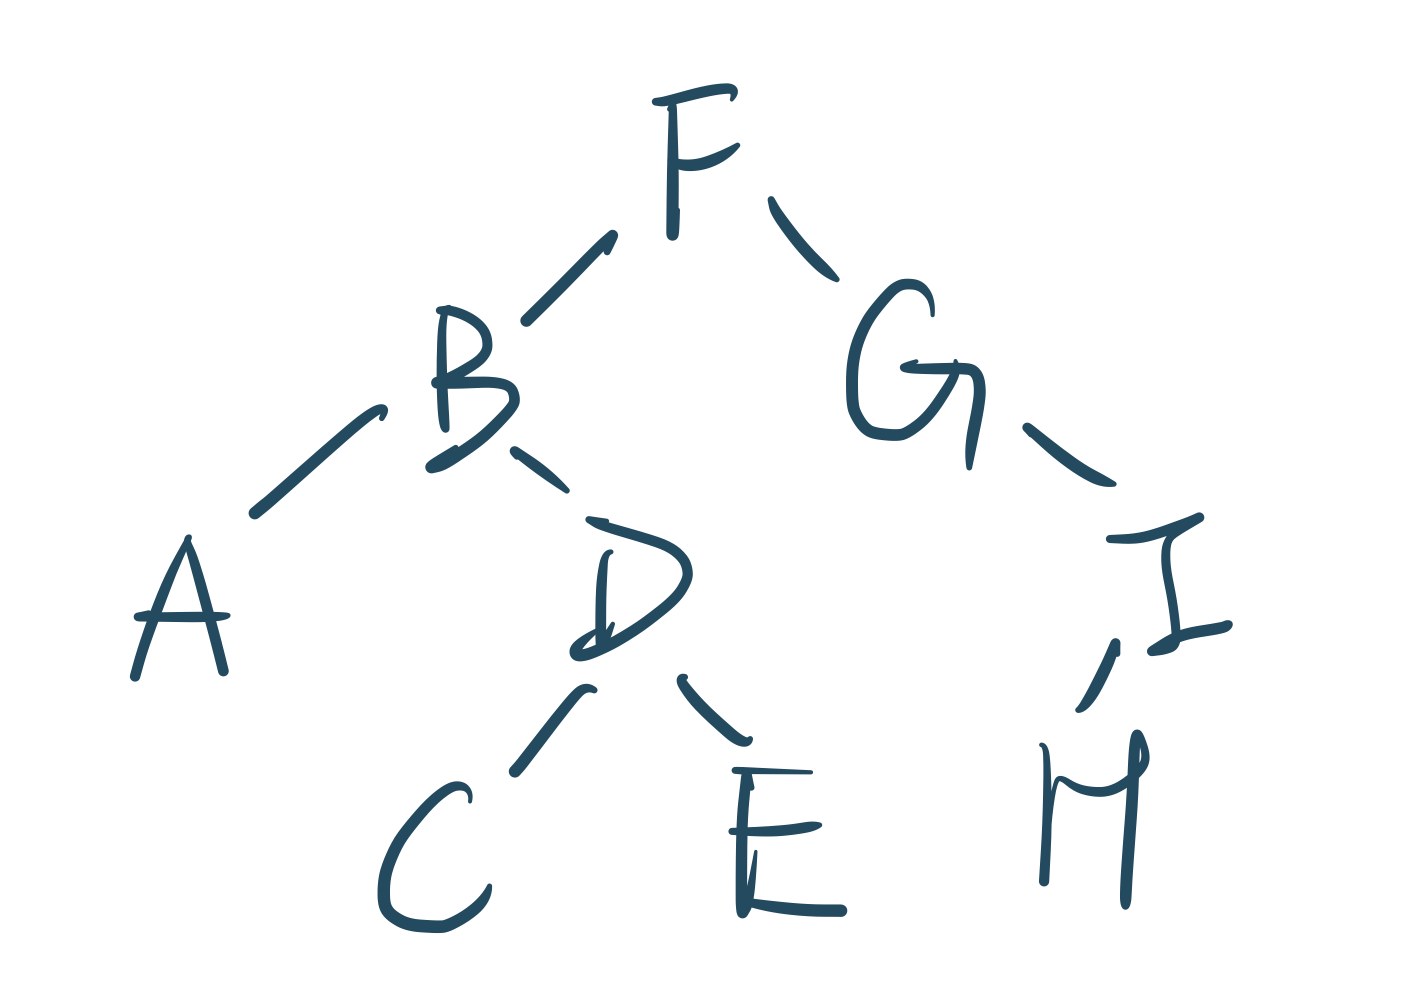 F
B G
A D I
C E H